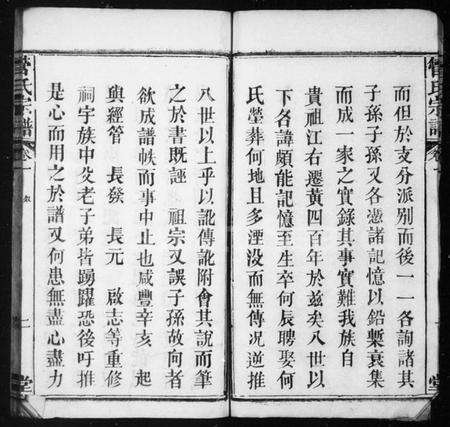 而但於支分派別而後一一各詢諸其
子孫子孫又各憑諸記憶以鉛槧裒集
而成一家之實錄其事實難我族自
貴祖江右遷黃四百年於茲矣八世以
下各諱頗能記憶至生卒何辰聘娶何
氏塋葬何地且多湮沒而無傳況逆推
八世以上乎以訛傳訛附會其說而筆
之於書既誣 祖宗又誤子孫故向者
欲成譜帙而事中止也咸豐辛亥 起
與經管 長發 長元 啟志等重修
祠宇族中父老子弟皆踴躍恐後吁推
是心而用之於譜又何患無盡心盡力
氏宗譜
卷一
敘
一
堂